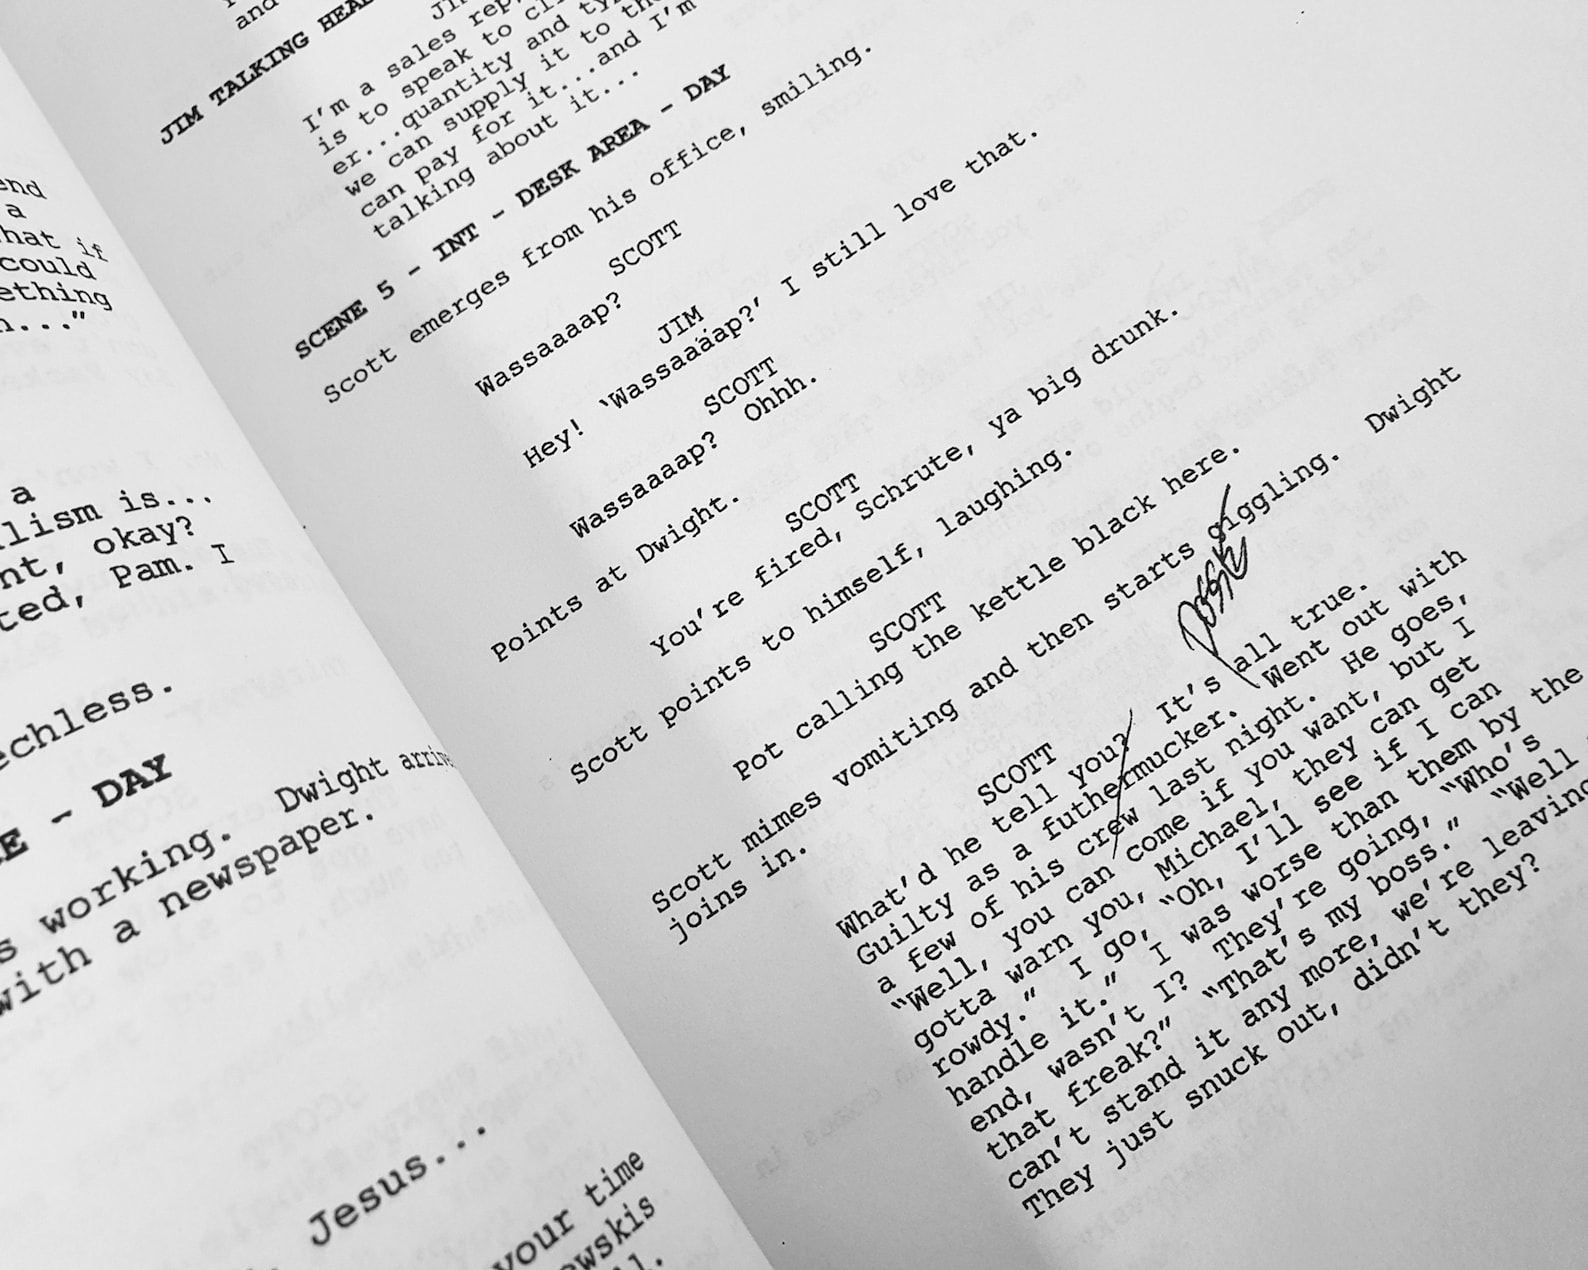 end
a
what if
could
ething
...”
a
lism is...
nt, okay?
ted, Pam. I
echless.
- DAY
s working. Dwight
with a newspaper.
Jesus...
your time
ewskis
and
JIM TALKING
I’m a sales rep,
is to speak to
er...quantity and
we can supply it to
can pay for it...and I’m
talking about it...
SCENE 5 - INT - DESK AREA - DAY
Scott emerges from his office, smiling.
SCOTT
Wassaaaap?
JIM
Hey! ‘Wassaaaap?’ I still love that.
SCOTT
Wassaaaap? Ohhh.
Points at Dwight.
SCOTT
You’re fired, Schrute, ya big drunk.
Scott points to himself, laughing.
SCOTT
Pot calling the kettle black here.
Scott mimes vomiting and then starts giggling. Dwight
joins in.
SCOTT
What’d he tell you? It’s all true.
Guilty as a futhermucker. Went out with
a few of his crew last night. He goes,
“Well, you can come if you want, but I
gotta warn you, Michael, they can get
rowdy.” I go, “Oh, I’ll see if I can
handle it.” I was worse than them by the
end, wasn’t I? They’re going, “Who’s
that freak?” “That’s my boss.” “Well
can’t stand it any more, we’re leaving
They just snuck out, didn’t they?